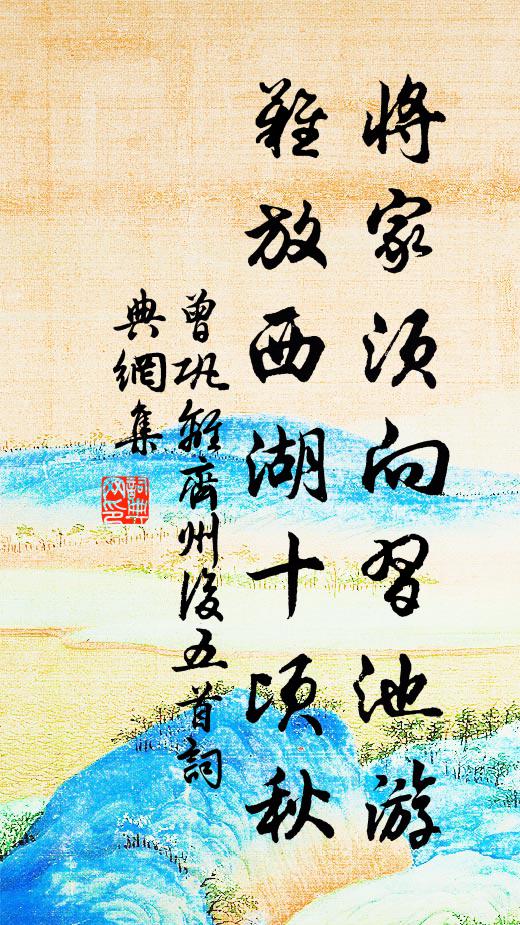 將家須向習池游
難放西湖十頃秋
曾巩離齊州後五首詞
典網集